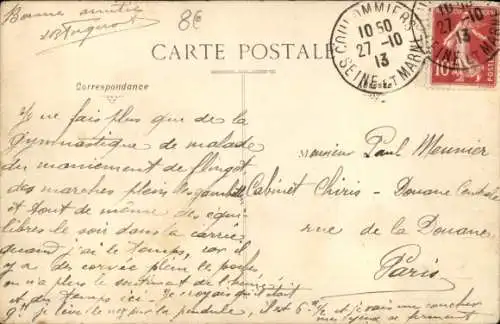 Bonne amitié
8€
CARTE POSTALE
COULOMMIERS
10 50
27 - 10
13
SEINE ET MARNE
10 50
27 - 10
13
SEINE ET MARNE
10
POSTES
Correspondance
Je ne fais plus que de la
Gymnastique de malade
du maniement de flingot
des marches plein les
et tout de même des équi-
libres le soir dans la carrée
quand j'ai le temps, car il
y a de corvée plein les poches
on n'a plus le sentiment de
et du temps ici - Je croyais qu'il était
je viens de voir la pendule, il est 6 et je vais me coucher
Monsieur Paul Meunier
Cabinet Chiris - Douane Centrale
rue de la Douane
Paris